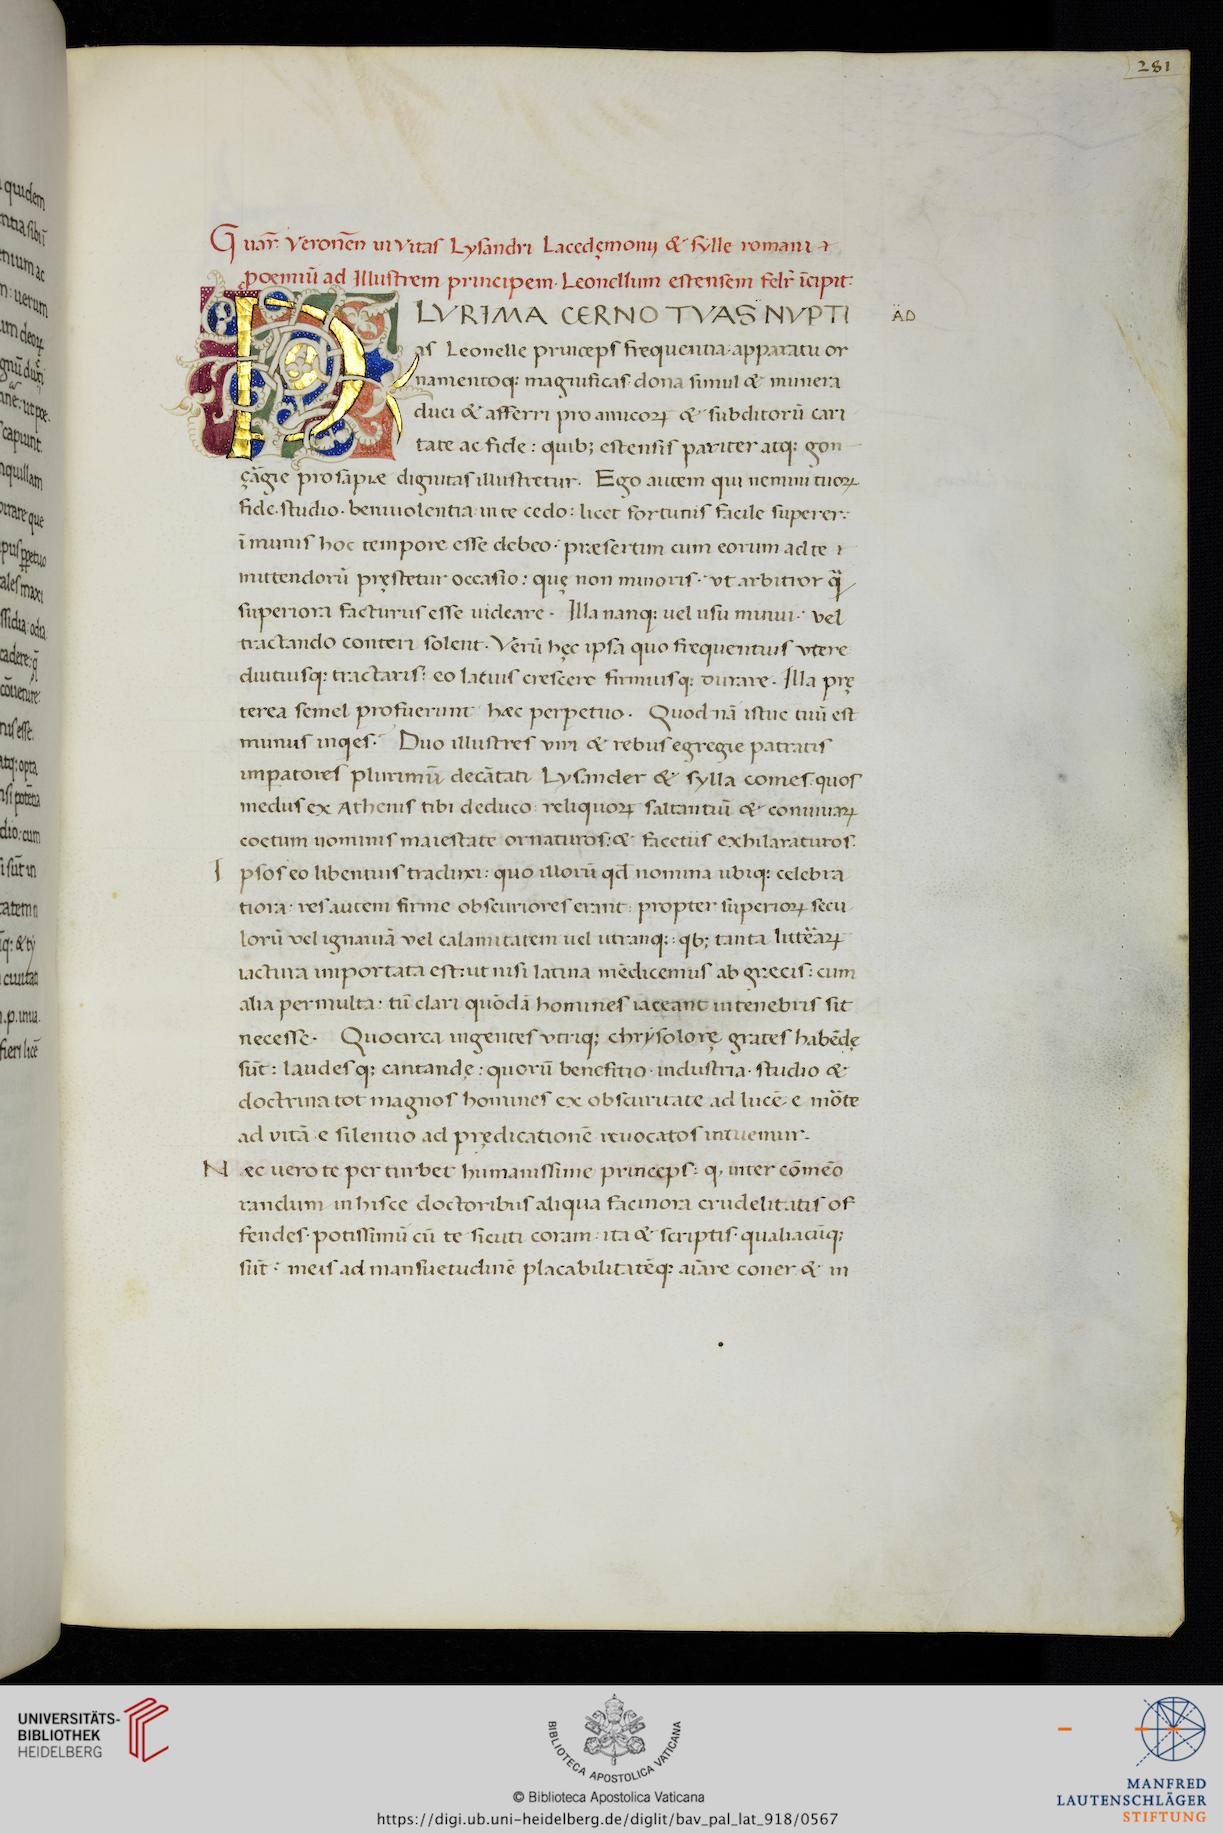 281
Guar̄. Veronēn in vitas Lysandri Lacedęmonij & sylle romani
ꝓoemiū ad Illustrem principem. Leonellum estensem felr̄ īcipit:
PLVRIMA CERNO TVAS NVPTI
AD
as Leonelle princeps frequentia. apparatu or
namentoqꝫ magnificas. dona simul & munera
duci & afferri pro amicoꝝ & subditorū cari
tate ac fide: quibꝫ estensis pariter atqꝫ gon
çāgie prosapiæ dignitas illustretur. Ego autem qui nemini tuoꝝ
fide. studio. beniuolentia in te cedo: licet fortunis facile superer:
īmunis hoc tempore esse debeo. præsertim cum eorum ad te
mittendorū pręstetur occasio: quę non minoris. vt arbitror q̄
superiora facturus esse uideare. Illa nanqꝫ uel usu minui. vel
tractando conteri solent. Verū hęc ipsa quo frequentius vtere
diutiusqꝫ tractaris: eo latius crescere firmiusqꝫ durare. Illa prę
terea semel profuerunt hæc perpetuo. Quod nā istuc tuū est
munus inqes. Duo illustres viri & rebus egregie patratis
imꝑatores plurimū decātati Lysander & sylla comes. quos
medus ex Athenis tibi deduco reliquoꝝ saltantiū & conuiuaꝝ
coetum nominis maiestate ornaturos: & facetiis exhilaraturos.
Ipsos eo libentius traduxi: quo illorū qd̄ nomina ubiqꝫ celebra
tiora. res autem ferme obscuriores erant: propter superioꝝ secu
lorū vel ignauiā vel calamitatem uel utranqꝫ: qbꝫ tanta litteraꝝ
iactura importata est: ut nisi latina mēdicemus ab græcis: cum
alia permulta: tū clari quōdā homines iaceant in tenebris sit
necesse. Quocirca ingentes vtriqꝫ chrysolorę grates habēdę
sūt: laudesqꝫ cantandę: quorū benefitio. industria. studio &
doctrina tot magnos homines ex obscuritate ad lucē e mōte
ad vitā e silentio ad prędicationē reuocatos intuemur.
Nec uero te perturbet humanissime princeps: q, inter cōmēo
randum in hisce doctoribus aliqua facinora crudelitatis of
fendes. potissimū cū te sicuti coram: ita & scriptis. qualiacūqꝫ
sūt: meis ad mansuetudinē placabilitatēqꝫ aīare coner & in
quidem
uerum
capiunt.
nquillam
UNIVERSITÄTS-
BIBLIOTHEK
HEIDELBERG
BIBLIOTECA APOSTOLICA VATICANA
© Biblioteca Apostolica Vaticana
https://digi.ub.uni-heidelberg.de/diglit/bav_pal_lat_918/0567
MANFRED
LAUTENSCHLÄGER
STIFTUNG